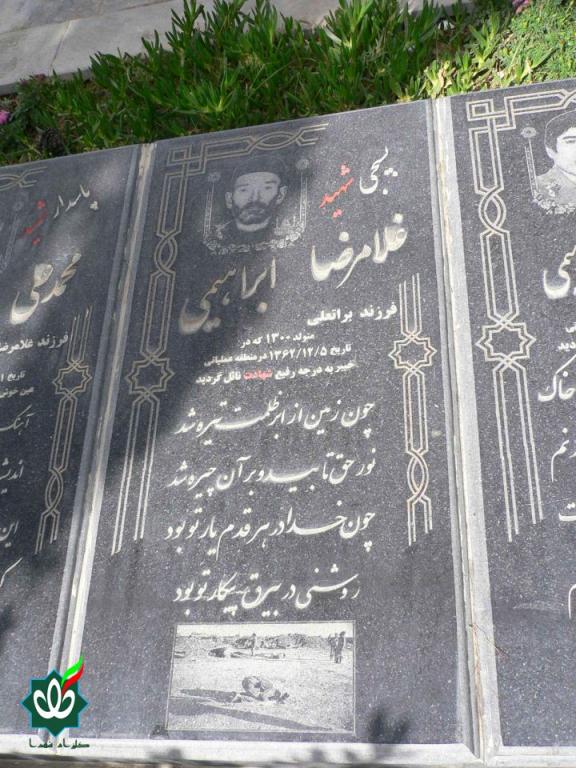 بسیجی
شهید
غلامرضا ابراهیمی
فرزند براتعلی
متولد ۱۳۰۰ که در
تاریخ ۱۳۶۲/۱۲/۵ در منطقه عملیاتی
خیبر به درجه رفیع شهادت نائل گردید
چون زمین از ابر ظلمت تیره شد
نور حق تابید و بر آن چیره شد
چون خدا در هر قدم یار تو بود
روشنی در بیرق پیکار تو بود
پاسدار شهید
محمد علی
فرزند غلامرضا
تاریخ
عین خوش
آهنگ
این
خاک
گلزار شهدا